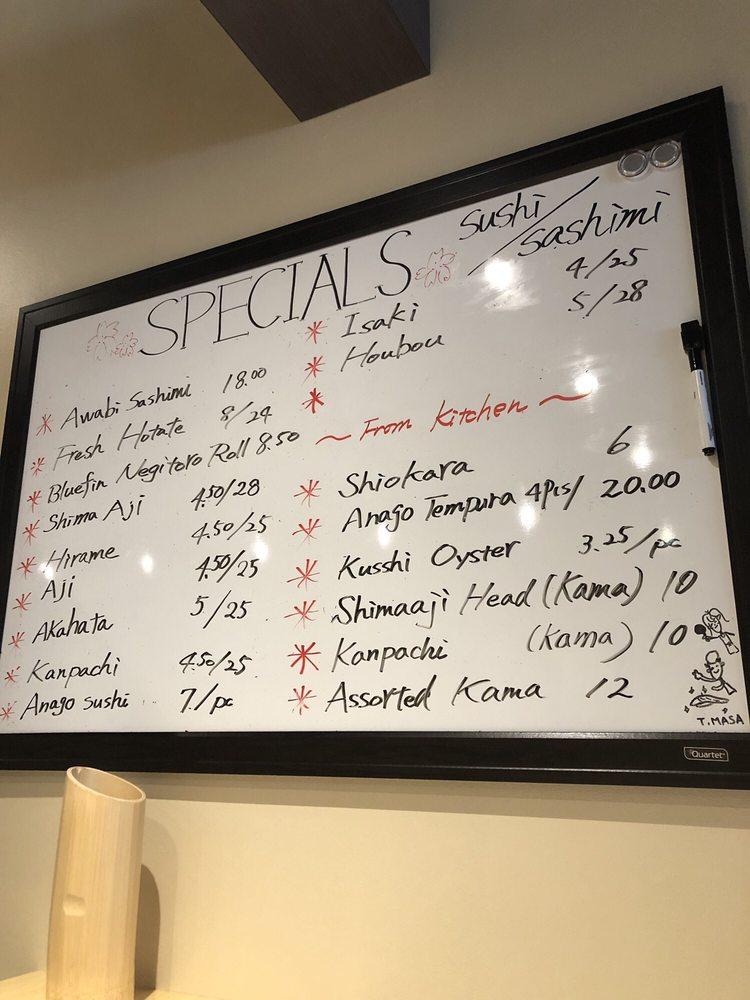 SPECIALS
sushi/sashimi
Awabi Sashimi 18.00
Fresh Hotate 8/24
Bluefin Negitoro Roll 8.50
Shima Aji 4.50/28
Hirame 4.50/25
Aji 4.50/25
Akahata 5/25
Kanpachi 4.50/25
Anago sushi 7/pc
Isaki 4/25
Houbou 5/28
~ From Kitchen ~
Shiokara 6
Anago Tempura 4pcs/ 20.00
Kusshi Oyster 3.25/pc
Shimaaji Head (Kama) 10
Kanpachi (Kama) 10
Assorted Kama 12
T.MASA
Quartet